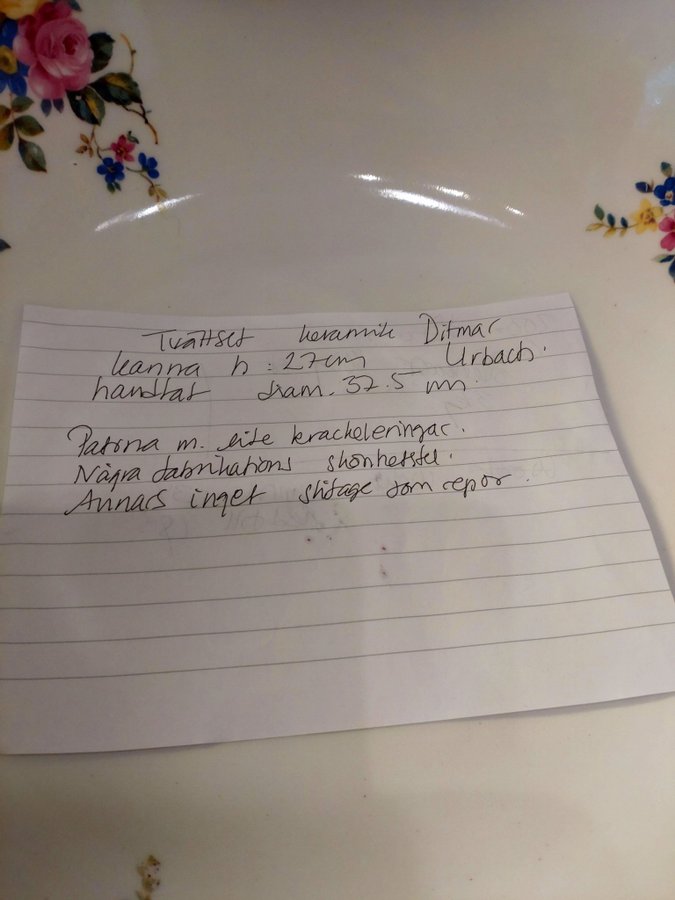 Tvättset keramik Ditmar
kanna h: 27cm Urbach.
handfat diam. 37.5 cm.
Patina m. lite krackeleringar.
Några fabrikations skönhetsfel.
Annars inget slitage som repor.